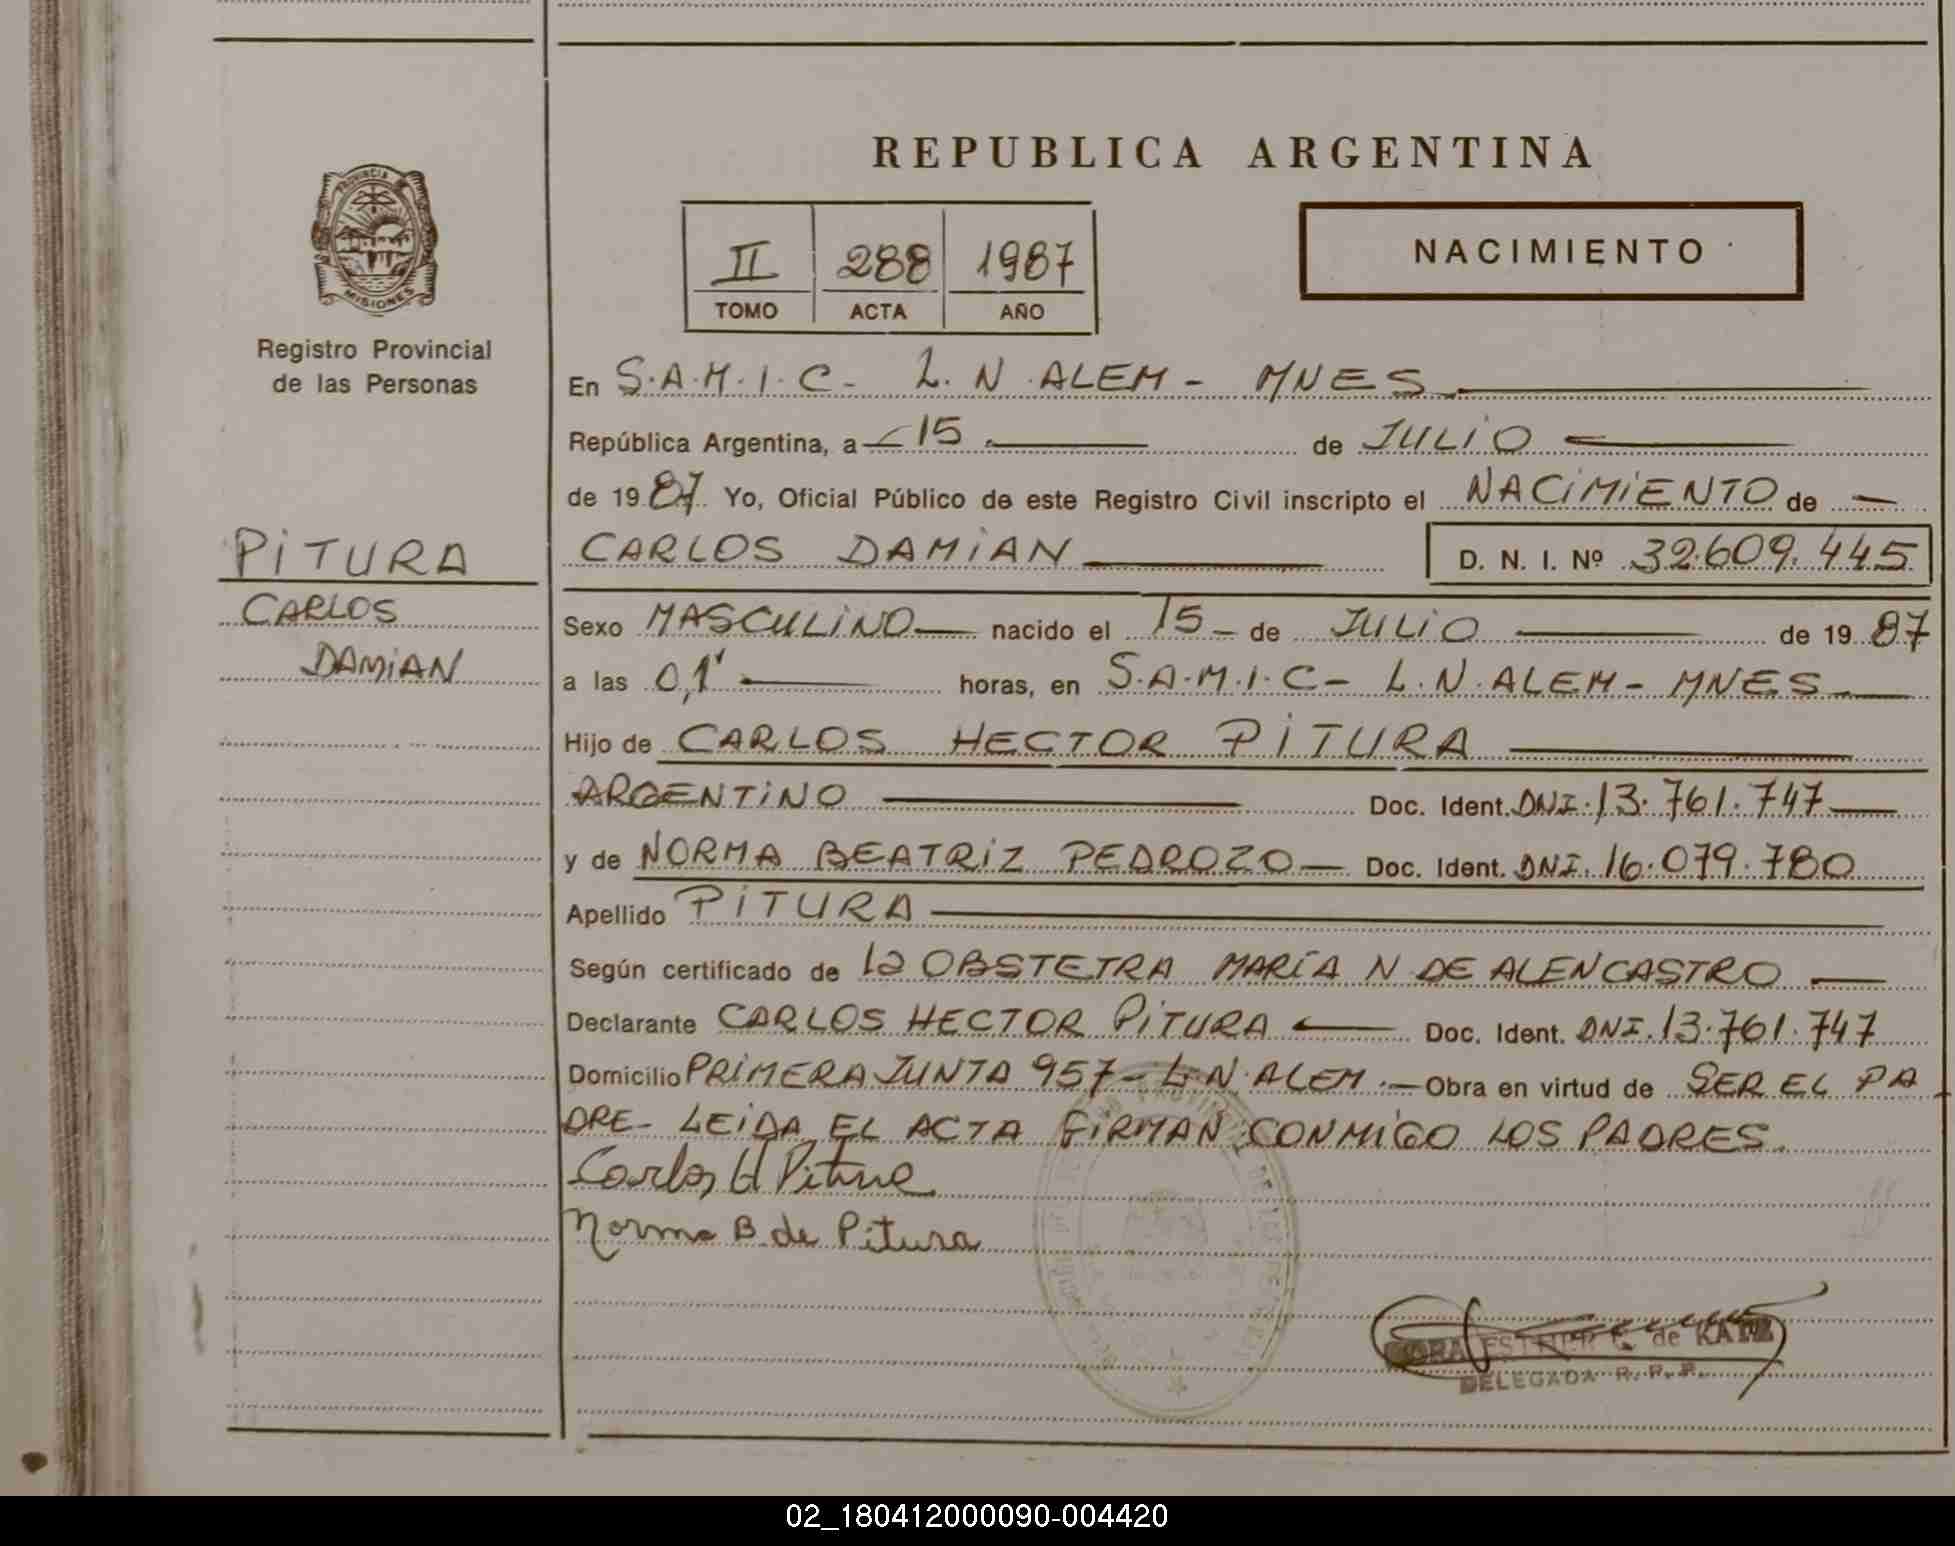 REPUBLICA ARGENTINA
PROVINCIA DE
MISIONES
Registro Provincial
de las Personas
II 288 1987
TOMO ACTA AÑO
NACIMIENTO
En S.A.M.I.C- L.N.ALEM- MNES
República Argentina, a 15 de JULIO
de 1987. Yo, Oficial Público de este Registro Civil inscripto el NACIMIENTO de
PITURA
CARLOS
DAMIAN
CARLOS DAMIAN D. N. I. Nº 32.609.445
Sexo MASCULINO nacido el 15 de JULIO de 1987
a las 0,1' horas, en S.A.M.I.C- L.N.ALEM- MNES
Hijo de CARLOS HECTOR PITURA
ARGENTINO Doc. Ident. DNI.13.761.747
y de NORMA BEATRIZ PEDROZO Doc. Ident. DNI.16.079.780
Apellido PITURA
Según certificado de la OBSTETRA MARÍA N DE ALENCASTRO
Declarante CARLOS HECTOR PITURA Doc. Ident. DNI.13.761.747
Domicilio PRIMERA JUNTA 957- L.N.ALEM.- Obra en virtud de SER EL PA
DRE- LEIDA EL ACTA FIRMAN CONMIGO LOS PADRES.
Carlos H Pitura
Norma B. de Pitura
ESTHER de KATZ
DELEGADA R. P. P.
02_180412000090-004420